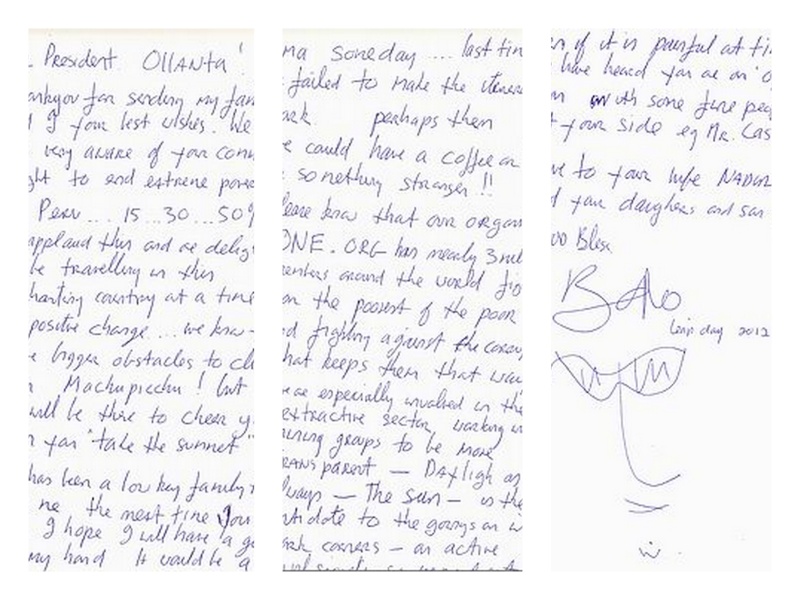 President Ollanta !
ankyou for sending my fam
I your best wishes. We
very aware of your comm
ght to end extreme pove
Peru ... 15 ... 30 ... 50%
applaud this and are delig
be travelling in this
hanting country at a time
positive change .... we know
e bigger obstacles to cli
n Machupicchu ! but
will be there to cheer y
n you "take the summet"
has been a low key family
me the next time you
I hope I will have a gu
my hand It would be a
ma someday .... last tim
failed to make the itenera
ark. perhaps then
e could have a coffee or
something stronger !!
lease know that our organ
ONE.ORG has nearly 3 mil
members around the world fig
on the poorest of the poor
nd fighting against the corru
hat keeps them that way
we are especially involved in the
extractive sector, working w
mining groups to be more
TRANSparent — Daylight
lways — The sun — is the
ntidote to the goings on in
ark corners — an active
en if it is painful at ti
have heard you are an o
m with some fine peop
t your side eg Mr. Cas
ve to your wife NADINE
d your daughters and son
OD Bless
Bono
Leap day 2012